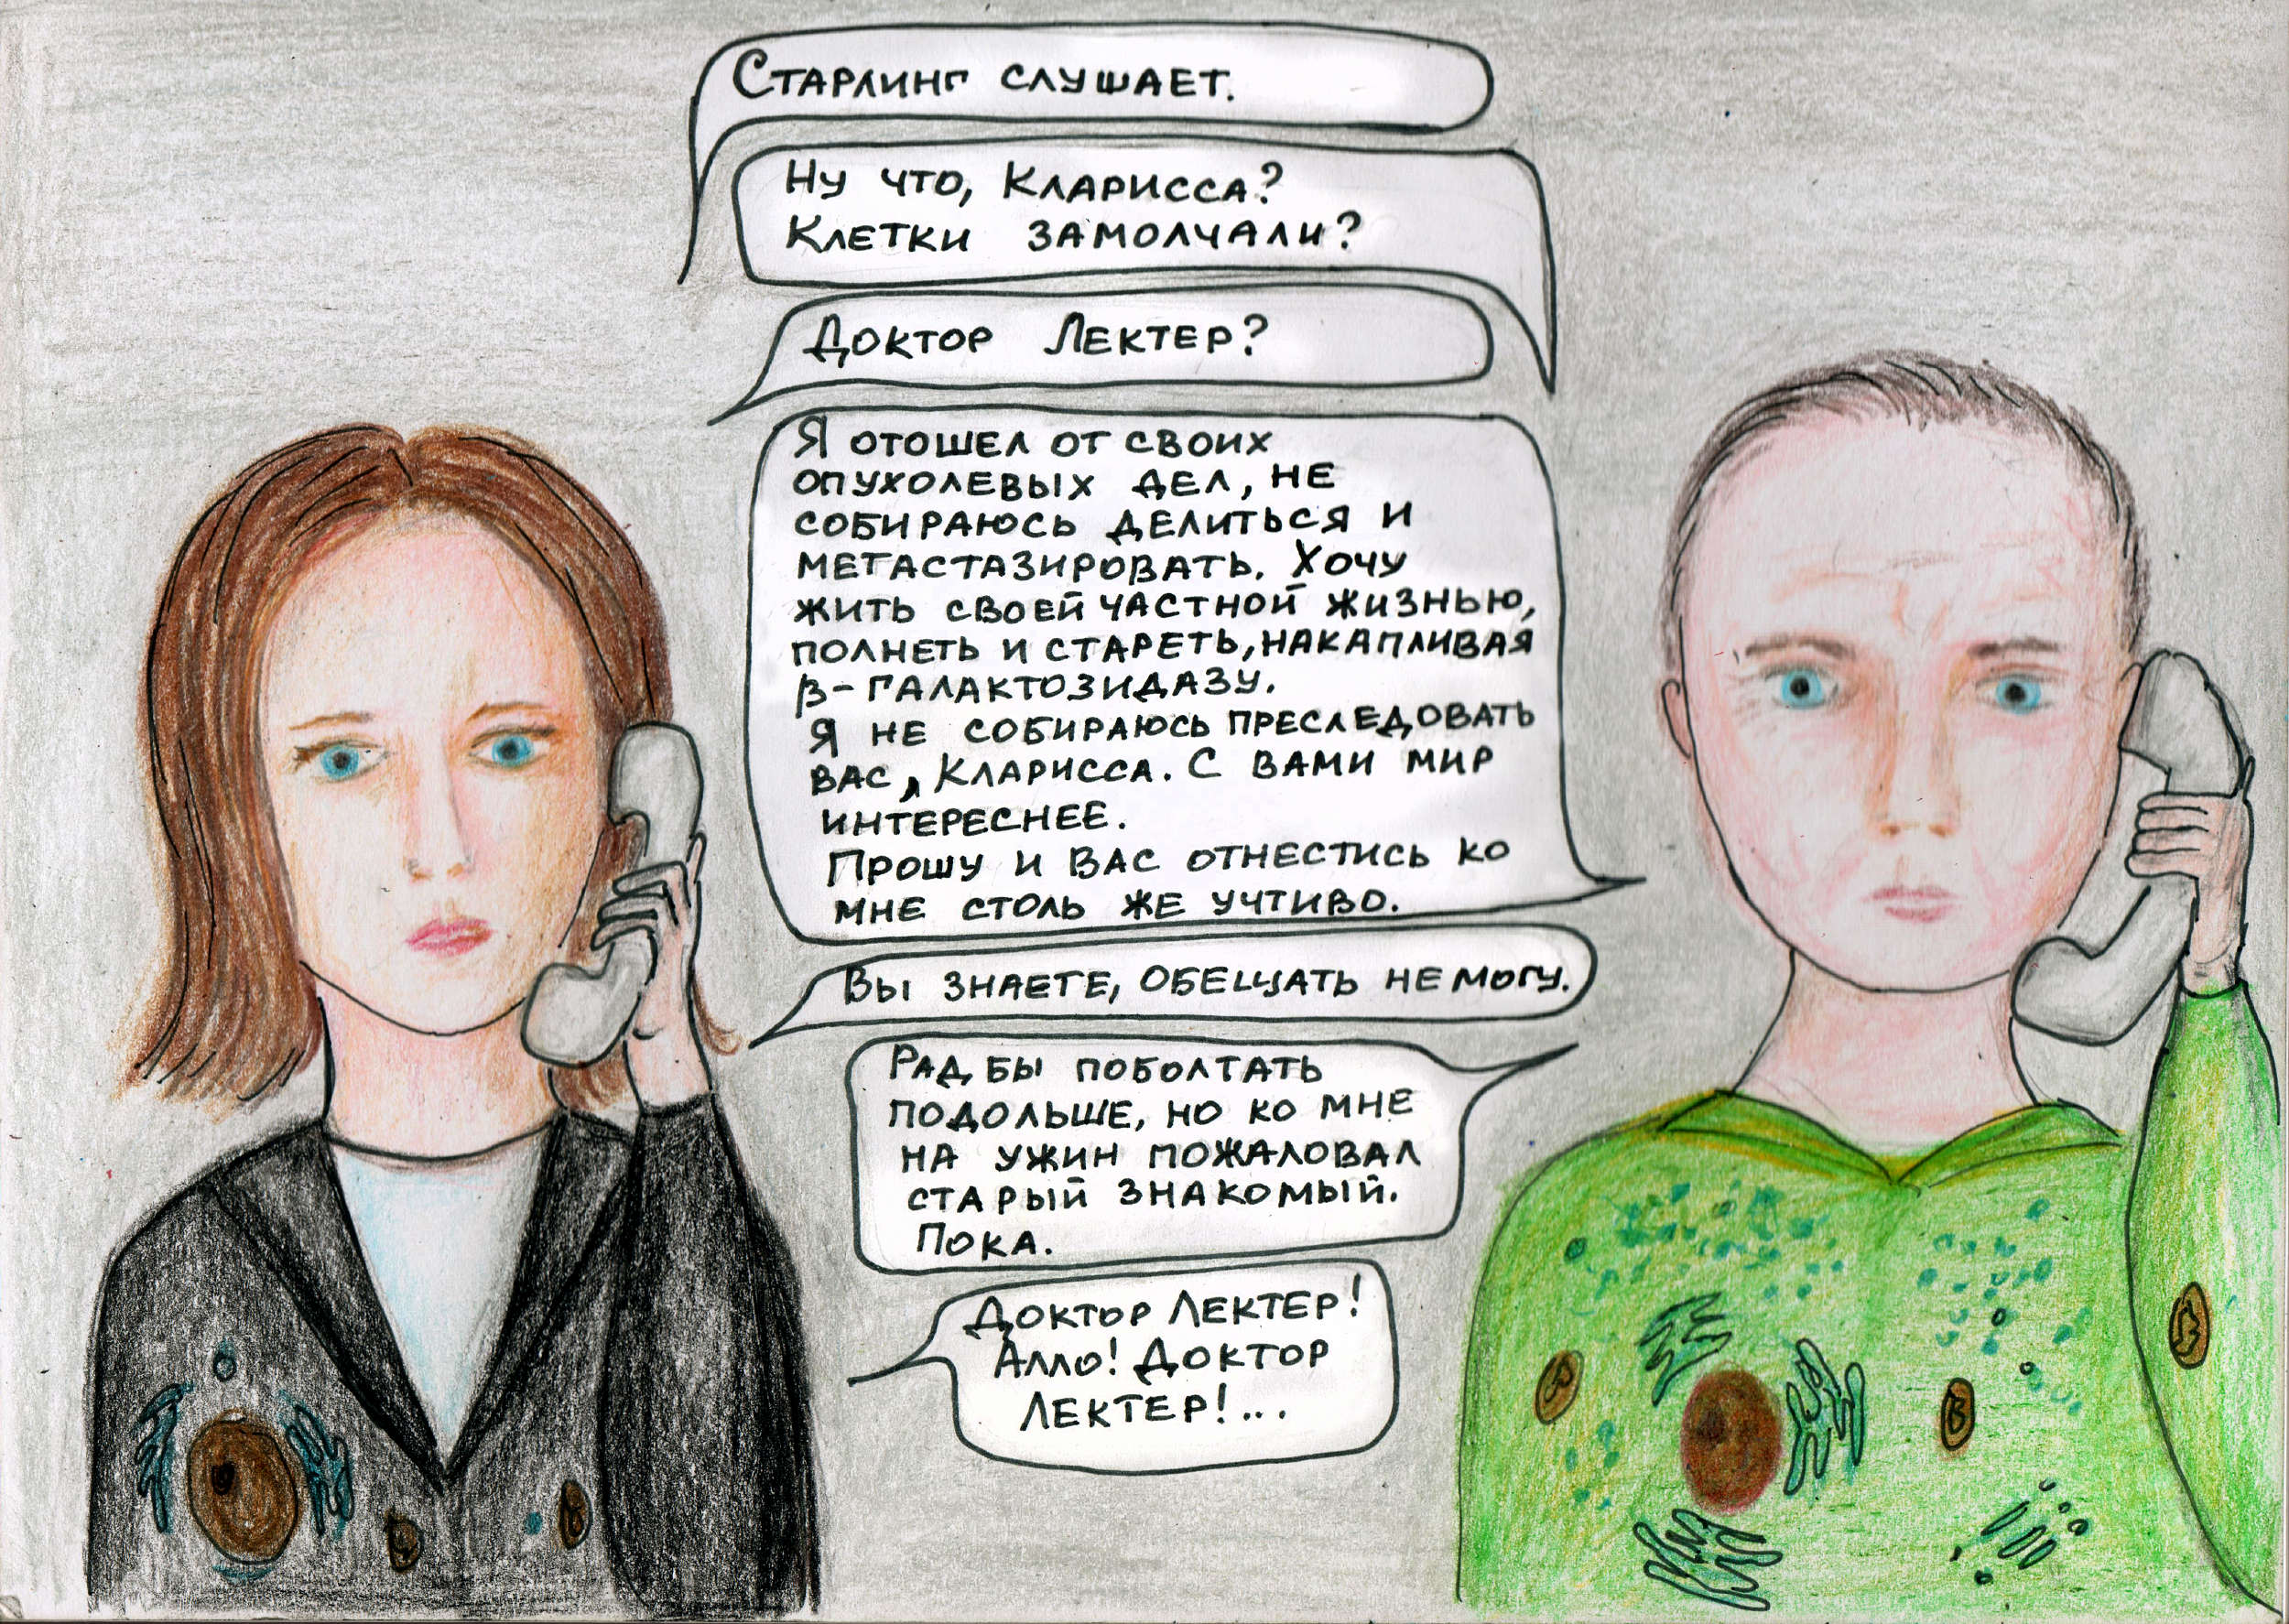 Старлинг слушает.
Ну что, Кларисса?
Клетки замолчали?
Доктор Лектер?
Я отошел от своих
опухолевых дел, не
собираюсь делиться и
метастазировать. Хочу
жить своей частной жизнью,
полнеть и стареть, накапливая
β-галактозидазу.
Я не собираюсь преследовать
вас, Кларисса. С вами мир
интереснее.
Прошу и вас отнестись ко
мне столь же учтиво.
Вы знаете, обещать не могу.
Рад бы поболтать
подольше, но ко мне
на ужин пожаловал
старый знакомый.
Пока.
Доктор Лектер!
Алло! Доктор
Лектер!...